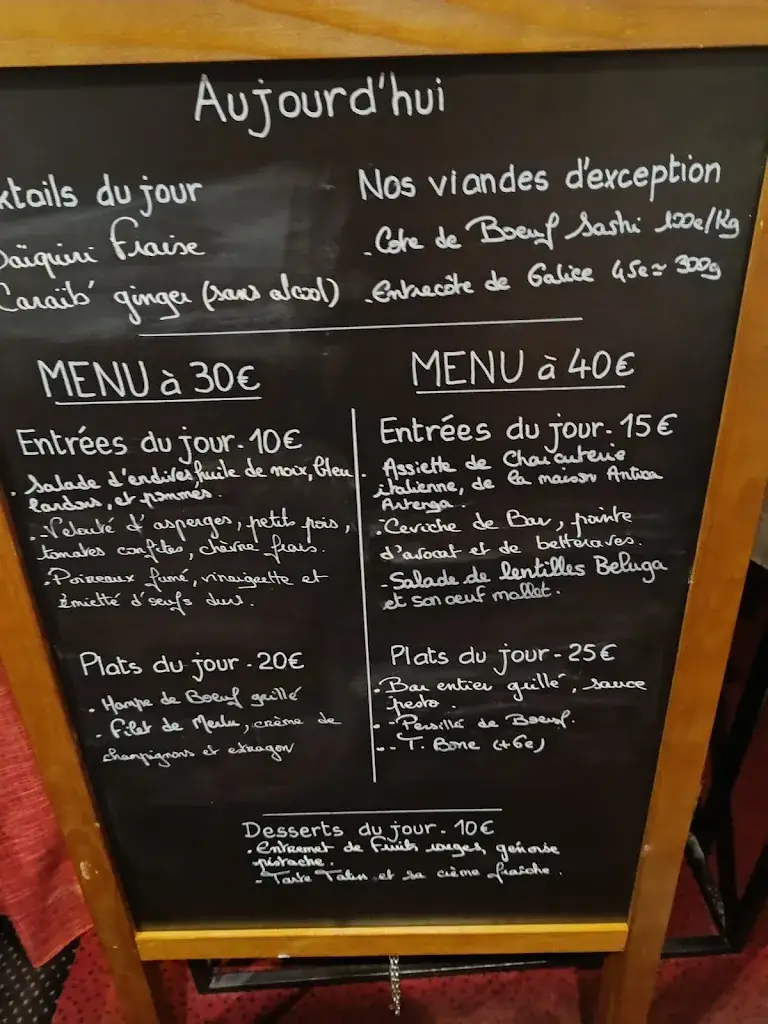 Aujourd'hui
ktails du jour
Daïquiri Fraise
Caraïb' ginger (sans alcool)
Nos viandes d'exception
. Cote de Boeuf Sashi 120e/Kg
. Entrecôte de Galice 45e≈ 300g
MENU à 30€
Entrées du jour. 10€
. Salade d'endives, huile de noix, bleu
lardons, et pommes.
. - Velouté d'asperges, petits pois,
tomates confites, chèvre frais.
. Poireaux fumé, vinaigrette et
émietté d'oeufs durs.
Plats du jour . 20€
. Hampe de Boeuf grillé
- Filet de Merlu, crème de
champignons et estragon
MENU à 40€
Entrées du jour. 15€
. Assiette de Charcuterie
italienne, de la maison Antica
. Ceviche de Bar, pointe
d'avocat et de betteraves.
- Salade de lentilles Beluga
et son oeuf mollet.
Plats du jour - 25€
. Bar entier grillé, sauce
pesto.
. - Persillé de Boeuf.
. - T. Bone (+6e)
Desserts du jour . 10€
. Entremet de Fruits rouges, genoise
pistache.
- Tarte Tatin et sa crème fraîche.